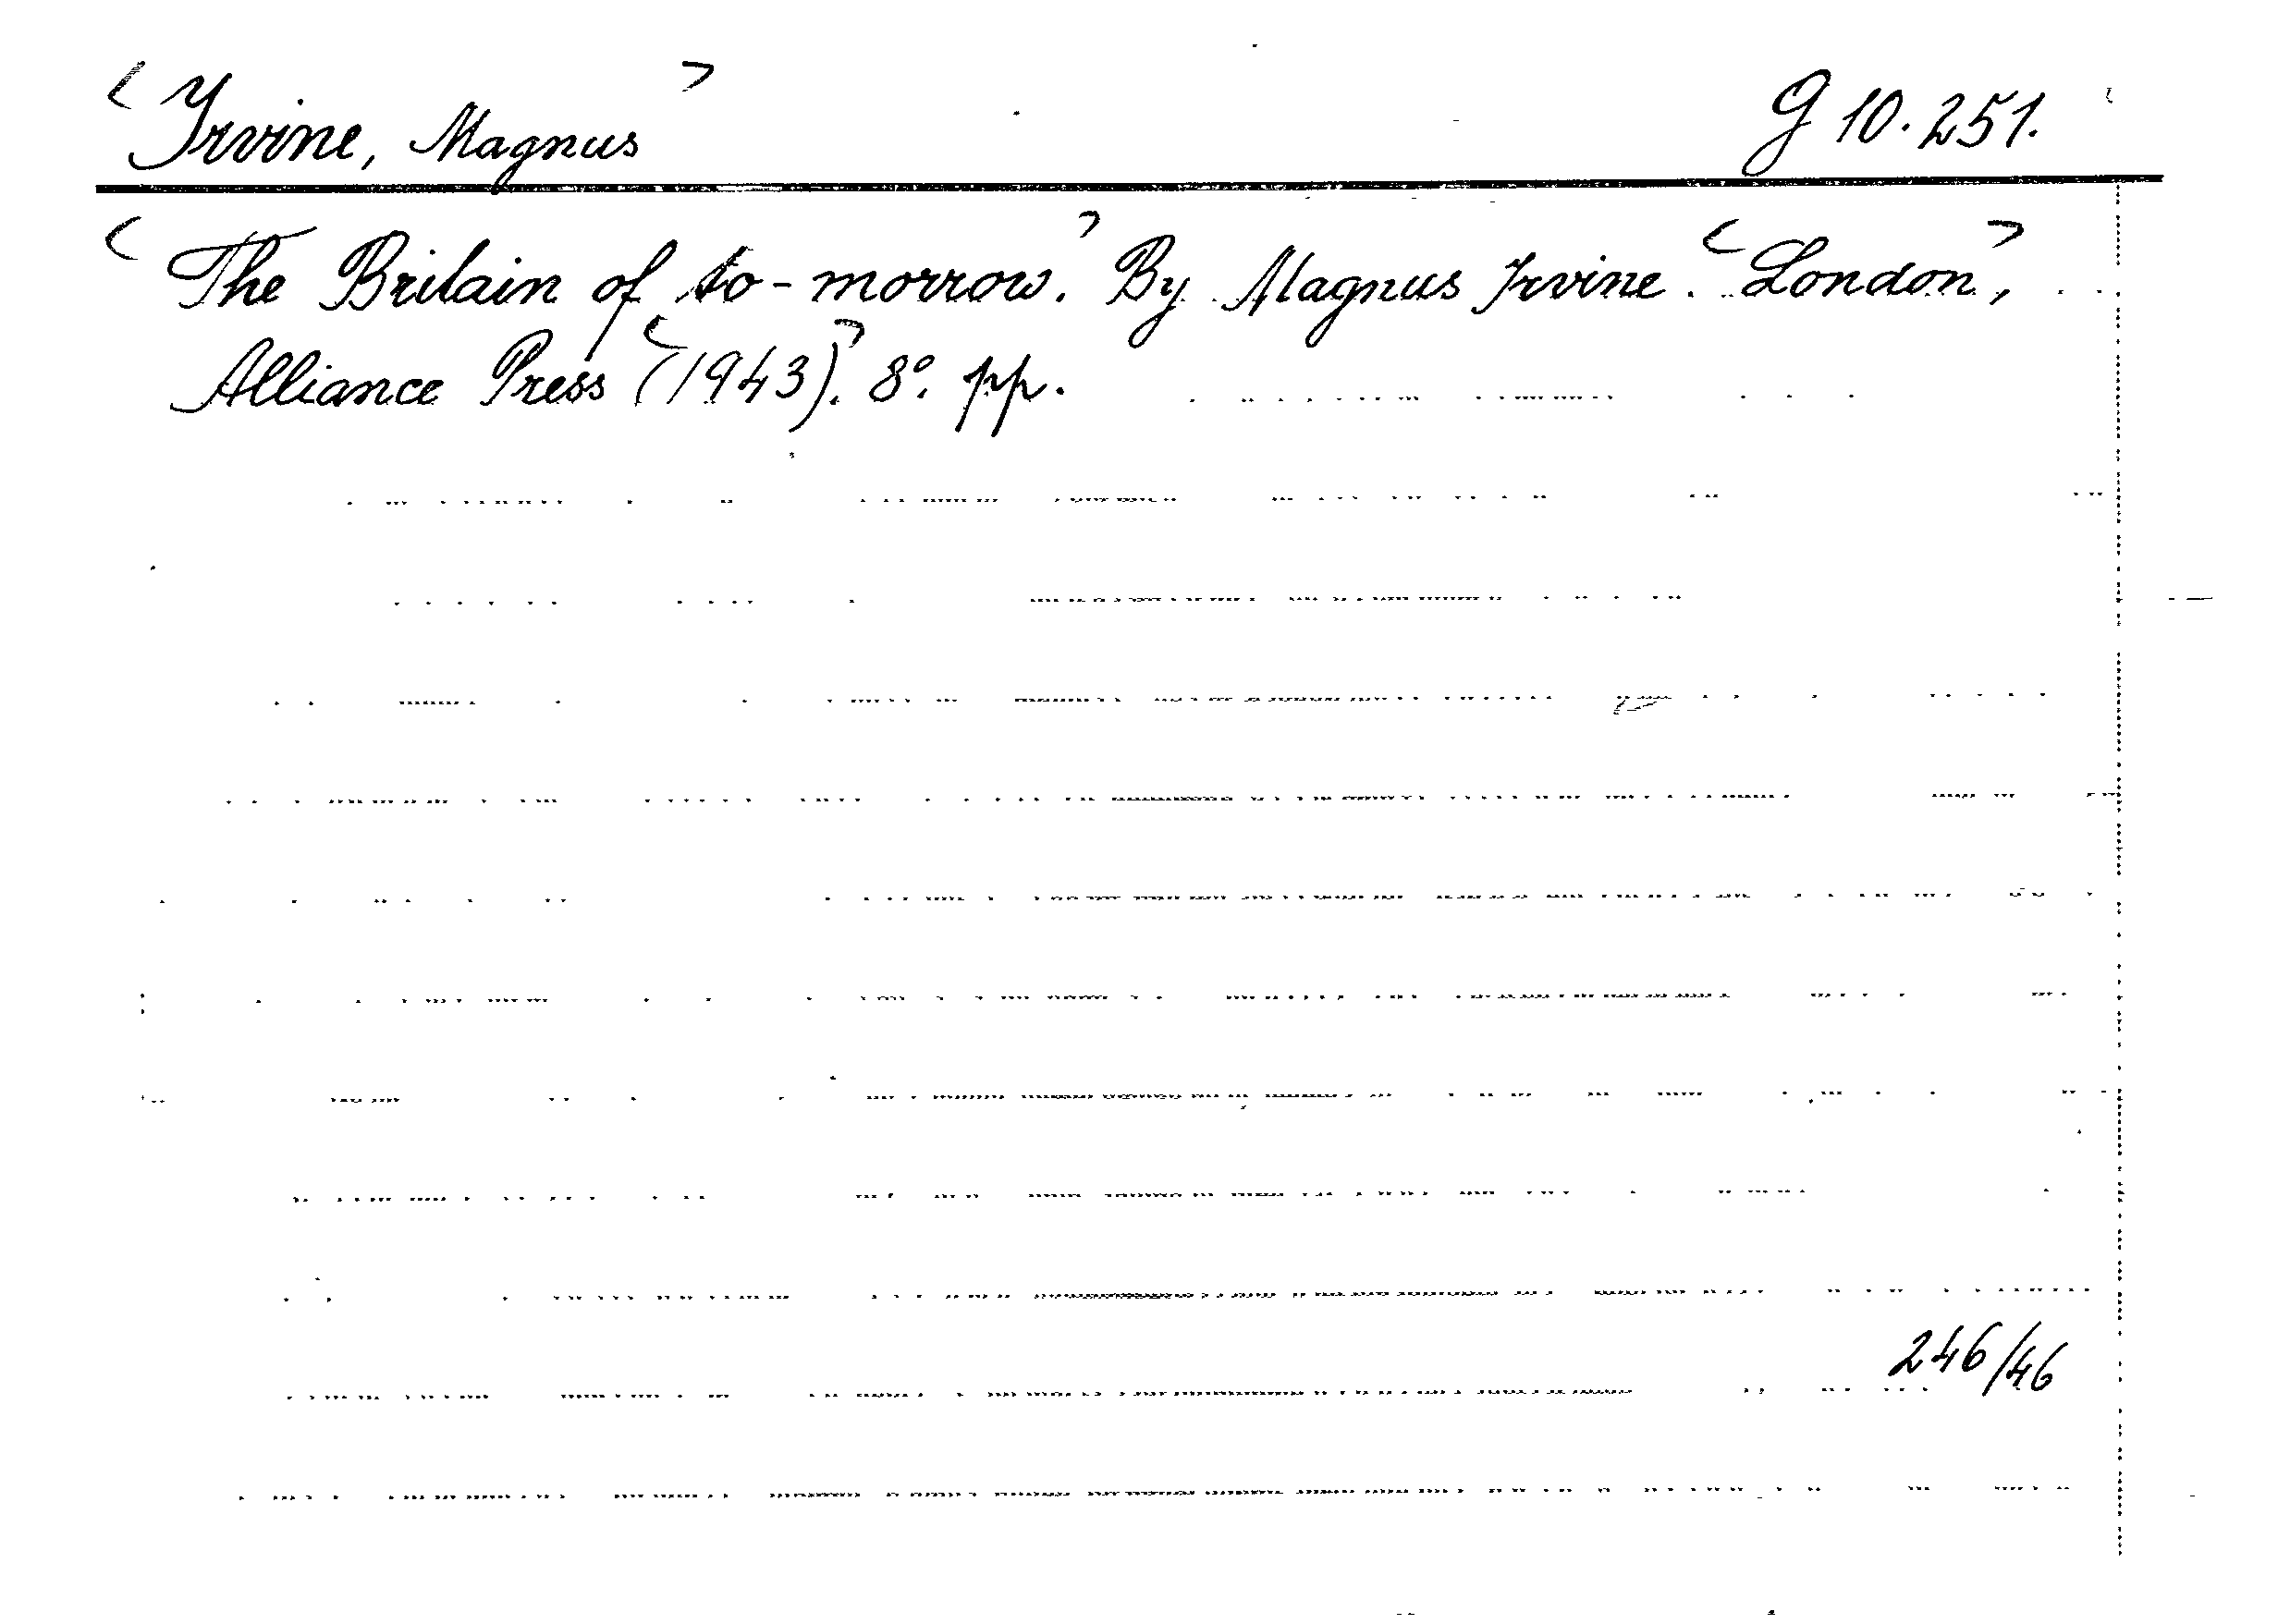 <Irvine, Magnus> G 10.251.
<The Britain of to-morrow.> By Magnus Irvine. <London>,
Alliance Press <(1943).> 8°. pp.
246/46